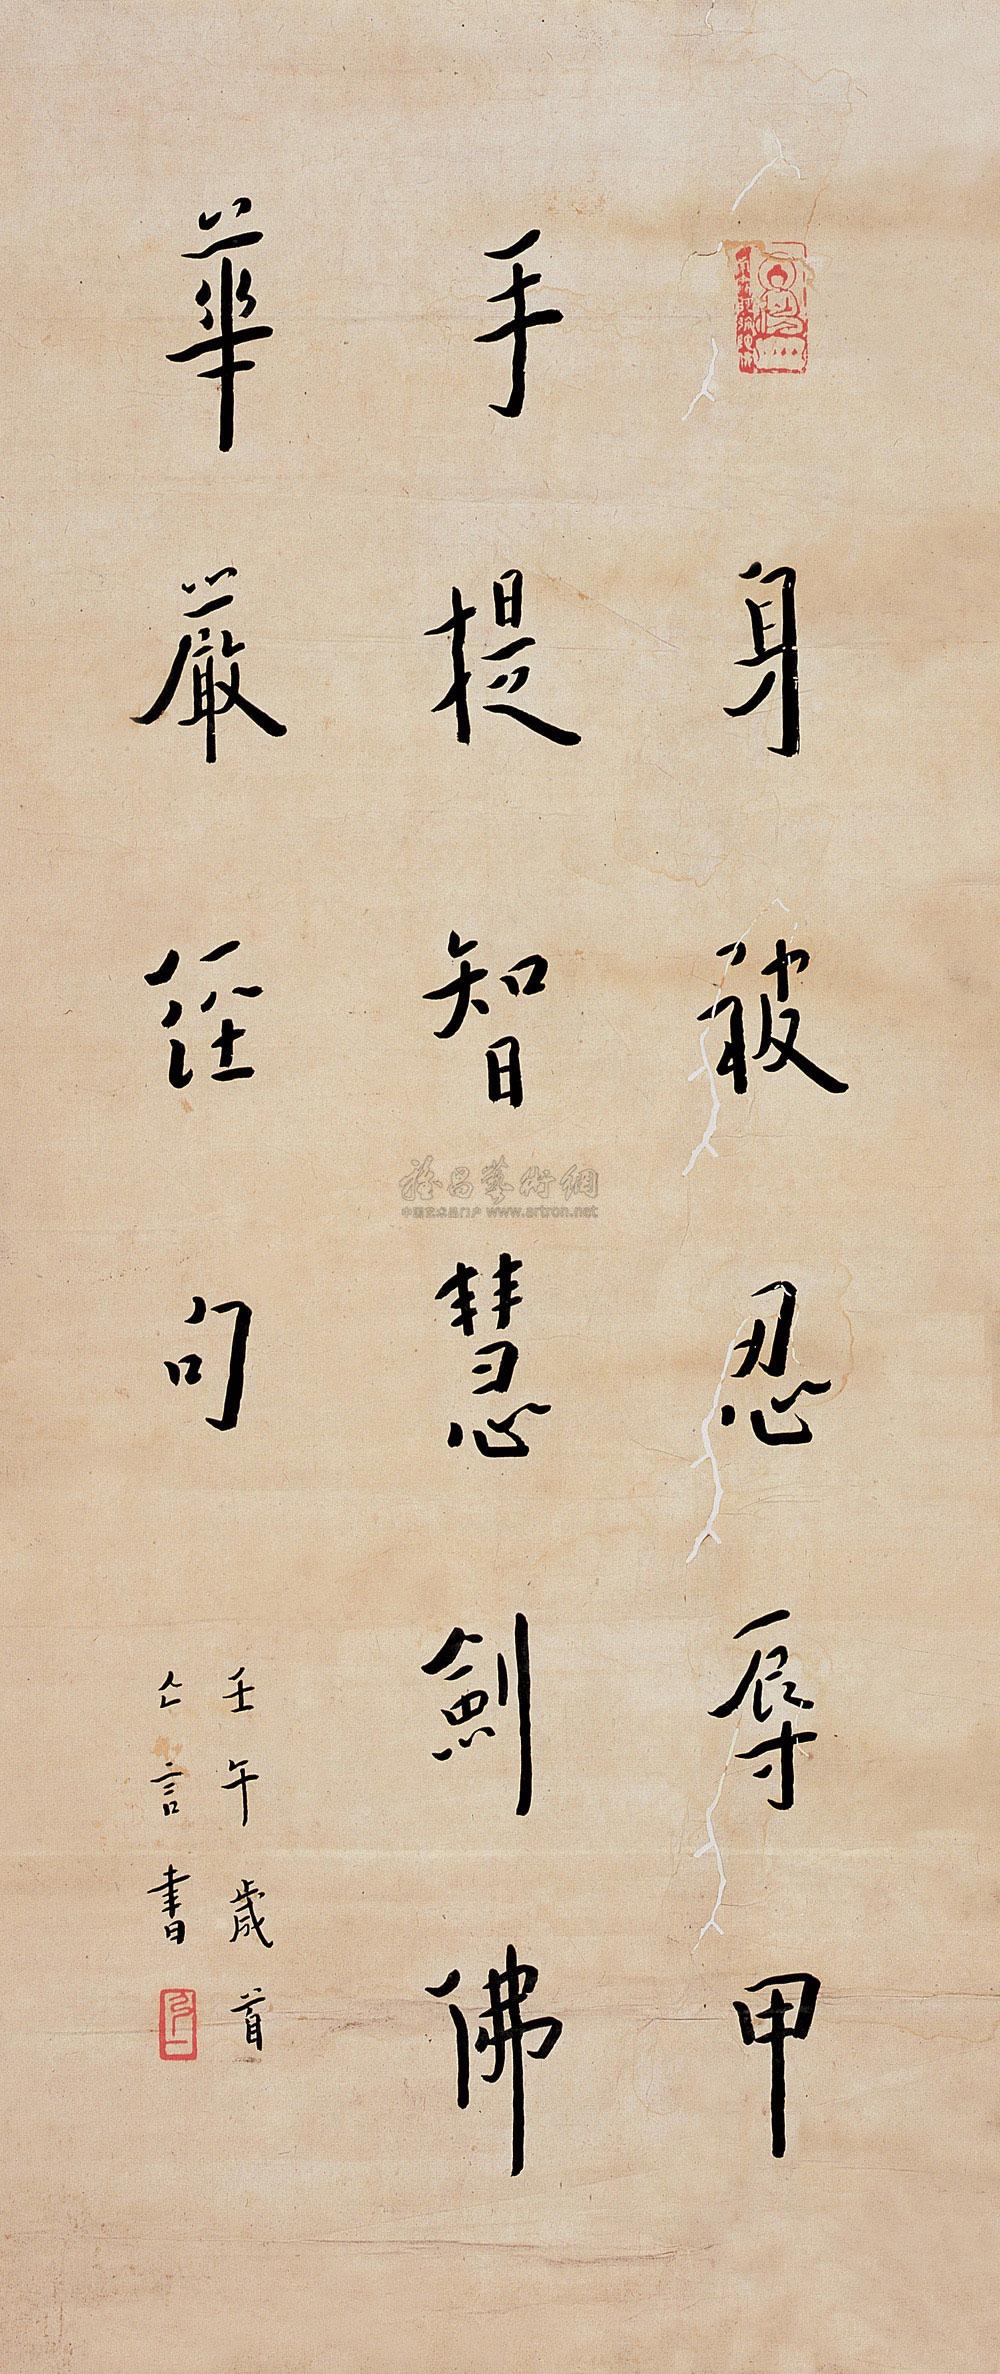 身被忍辱甲
手提智慧劍佛
華嚴經句
壬午歲首
亡言書
雅昌藝術網
中国艺术品门户 www.artron.net